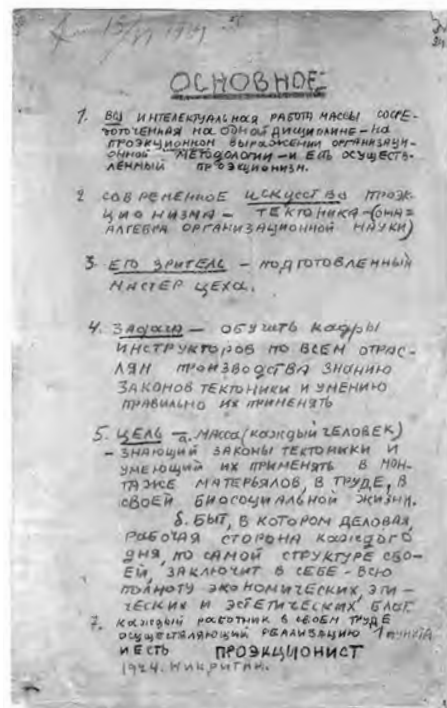 15/VI 1924
ОСНОВНОЕ:
1. ВСЯ ИНТЕЛЕКТУАЛЬНАЯ РАБОТА МАССЫ СОСРЕ-
ДОТОЧЕННАЯ НА ОДНОЙ ДИСЦИПЛИНЕ – НА
ПРОЭКЦИОННОМ ВЫРАЖЕНИИ ОРГАНИЗАЦИ-
ОННОЙ МЕТОДОЛОГИИ – И ЕСТЬ ОСУЩЕСТВ-
ЛЕННЫЙ ПРОЭКЦИОНИЗМ.
2 СОВРЕМЕННОЕ ИСКУССТВО ПРОЭК-
ЦИОНИЗМА – ТЕКТОНИКА – (ОНА =
АЛГЕБРА ОРГАНИЗАЦИОННОЙ НАУКИ)
3. ЕГО ЗРИТЕЛЬ – ПОДГОТОВЛЕННЫЙ
МАСТЕР ЦЕХА.
4. ЗАДАЧА – ОБУЧИТЬ КАДРЫ
ИНСТРУКТОРОВ ПО ВСЕМ ОТРАС-
ЛЯМ ПРОИЗВОДСТВА ЗНАНИЮ
ЗАКОНОВ ТЕКТОНИКИ И УМЕНИЮ
ПРАВИЛЬНО ИХ ПРИМЕНЯТЬ
5. ЦЕЛЬ – а. МАССА (КАЖДЫЙ ЧЕЛОВЕК)
– ЗНАЮЩИЙ ЗАКОНЫ ТЕКТОНИКИ И
УМЕЮЩИЙ ИХ ПРИМЕНЯТЬ В МОН-
ТАЖЕ МАТЕРЬЯЛОВ, В ТРУДЕ, В
СВОЕЙ БИОСОЦИАЛЬНОЙ ЖИЗНИ.
б. БЫТ, В КОТОРОМ ДЕЛОВАЯ,
РАБОЧАЯ СТОРОНА КАЖДОГО
ДНЯ, ПО САМОЙ СТРУКТУРЕ СВО-
ЕЙ, ЗАКЛЮЧИТ В СЕБЕ – ВСЮ
ПОЛНОТУ ЭКОНОМИЧЕСКИХ, ЭТИ-
ЧЕСКИХ И ЭСТЕТИЧЕСКИХ БЛАГ
7. КАЖДЫЙ РАБОТНИК В СВОЕМ ТРУДЕ
ОСУЩЕСТВЛЯЮЩИЙ РЕАЛИЗАЦИЮ 1 ПУНКТА
И ЕСТЬ ПРОЭКЦИОНИСТ
1924. НИКРИТИН.